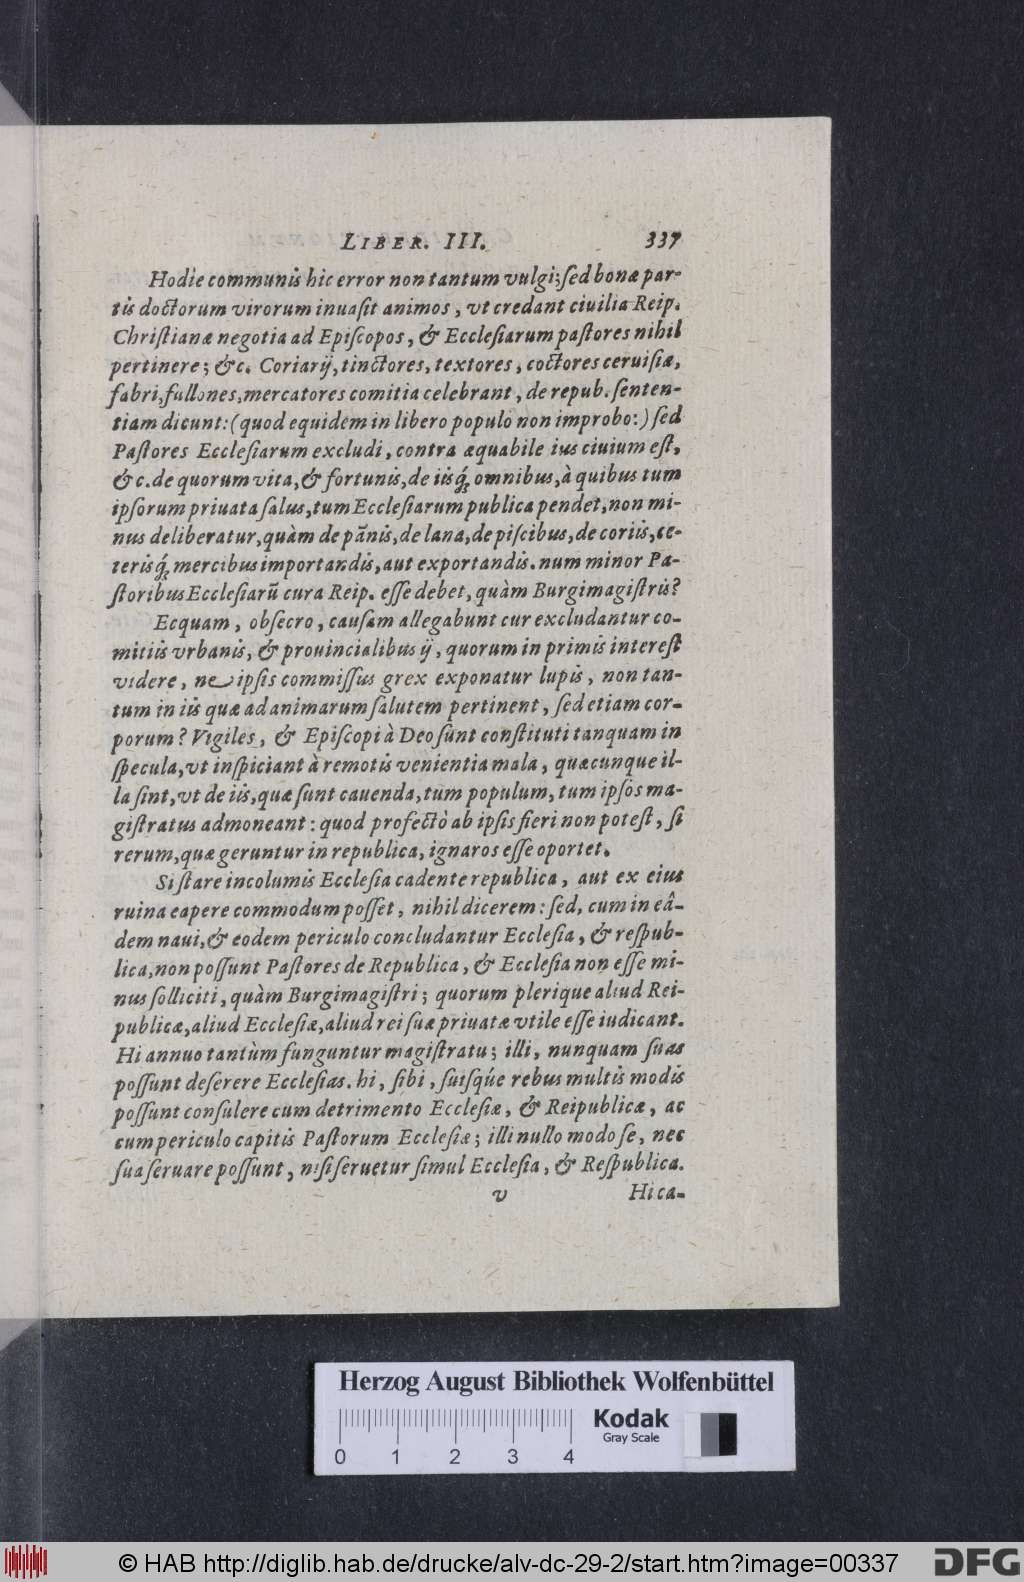 LIBER. III. 337
Hodie communis hic error non tantum vulgi; ſed bonæ par-
tis doctorum virorum inuaſit animos, vt credant ciuilia Reip.
Chriſtianæ negotia ad Epiſcopos, & Eccleſiarum paſtores nihil
pertinere; &c. Coriarij, tinctores, textores, coctores ceruiſiæ,
fabri, fullones, mercatores comitia celebrant, de repub. ſenten-
tiam dicunt: (quod equidem in libero populo non improbo:) ſed
Paſtores Eccleſiarum excludi, contra æquabile ius ciuium eſt,
&c. de quorum vita, & fortunis, de iisq́; omnibus, à quibus tum
ipſorum priuata ſalus, tum Eccleſiarum publica pendet, non mi-
nus deliberatur, quàm de pãnis, de lana, de piſcibus, de coriis, ce-
terisq́; mercibus importandis, aut exportandis. num minor Pa-
ſtoribus Eccleſiarũ cura Reip. eſſe debet, quàm Burgimagiſtris?
Ecquam, obſecro, cauſam allegabunt cur excludantur co-
mitiis vrbanis, & prouincialibus ij, quorum in primis intereſt
videre, ne ipſis commiſſus grex exponatur lupis, non tan-
tum in iis quæ ad animarum ſalutem pertinent, ſed etiam cor-
porum? Vigiles, & Epiſcopi à Deo ſunt conſtituti tanquam in
ſpecula, vt inſpiciant à remotis venientia mala, quæcunque il-
la ſint, vt de iis, quæ ſunt cauenda, tum populum, tum ipſos ma-
giſtratus admoneant: quod profectò ab ipſis fieri non poteſt, ſi
rerum, quæ geruntur in republica, ignaros eſſe oportet.
Si ſtare incolumis Eccleſia cadente republica, aut ex eius
ruina capere commodum poſſet, nihil dicerem: ſed, cum in eâ-
dem naui, & eodem periculo concludantur Eccleſia, & reſpub-
lica, non poſſunt Paſtores de Republica, & Eccleſia non eſſe mi-
nus ſolliciti, quàm Burgimagiſtri; quorum plerique aliud Rei-
publicæ, aliud Eccleſiæ, aliud rei ſuæ priuatæ vtile eſſe iudicant.
Hi annuo tantùm funguntur magiſtratu; illi, nunquam ſuas
poſſunt deſerere Eccleſias. hi, ſibi, ſuiſqúe rebus multis modis
poſſunt conſulere cum detrimento Eccleſiæ, & Reipublicæ, ac
cum periculo capitis Paſtorum Eccleſiæ; illi nullo modo ſe, nec
ſua ſeruare poſſunt, niſi ſeruetur ſimul Eccleſia, & Reſpublica.
v Hi ca-
Herzog August Bibliothek Wolfenbüttel
Kodak
Gray Scale
0 1 2 3 4
© HAB http://diglib.hab.de/drucke/alv-dc-29-2/start.htm?image=00337
DFG